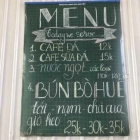 MENU
1. CAFE ĐÁ 12k
2. CAFE SỮA ĐÁ 15k
3. nước ngọt các loại
BÚN BÒ HUẾ
tái - nạm - chả cua
giò heo
25k - 30k - 35k